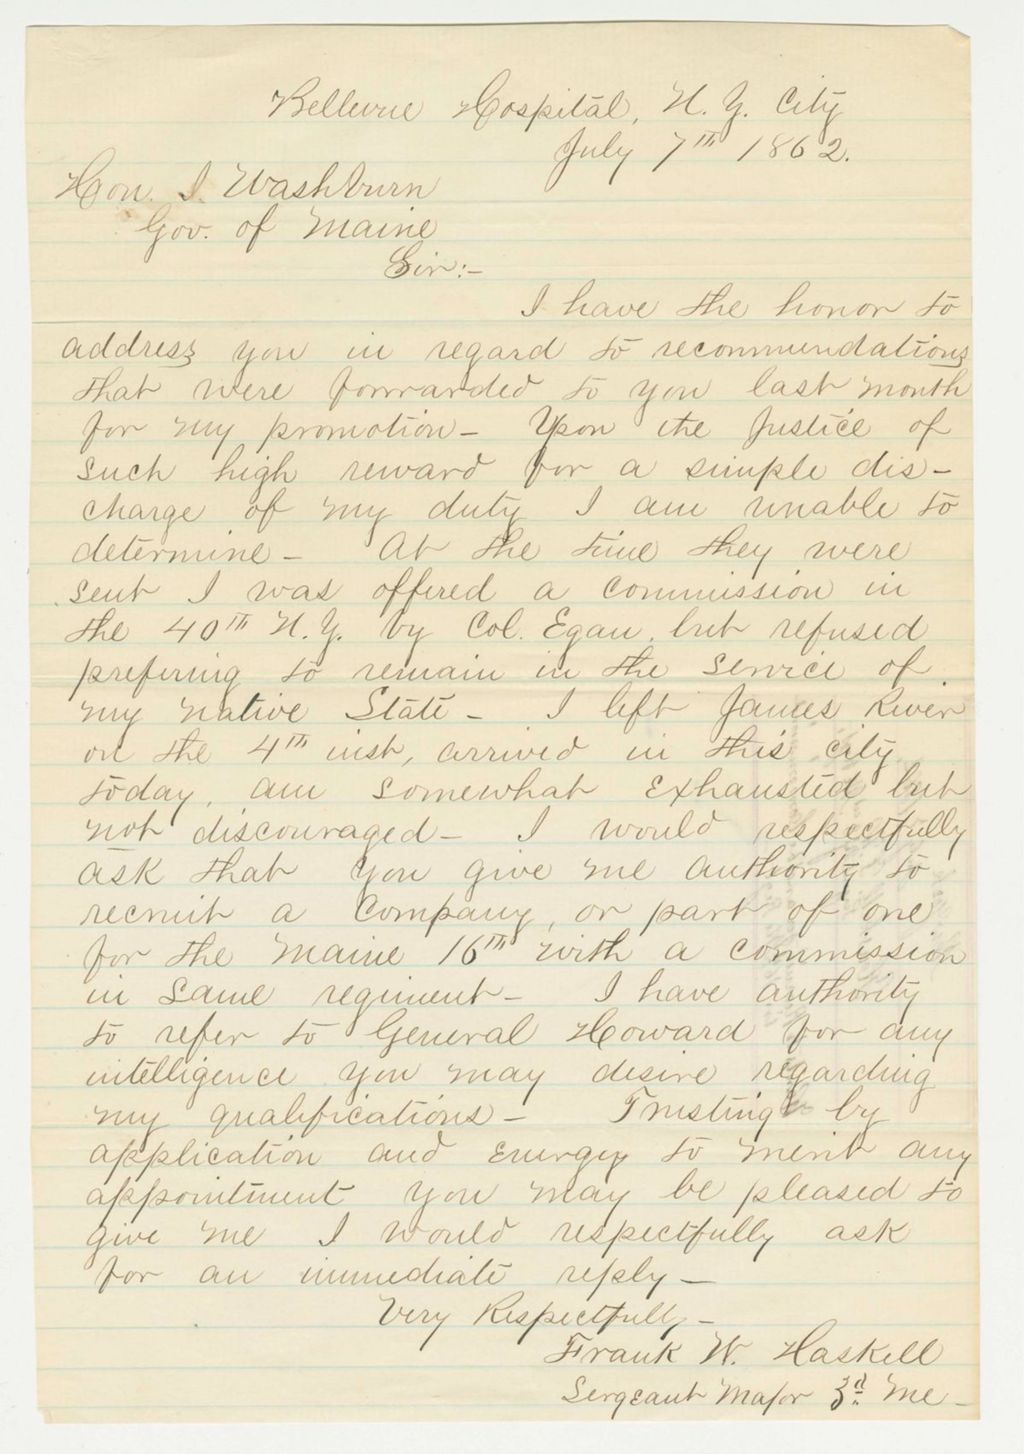 Bellevue Hospital, N. Y. City
July 7th 1862.
Hon. I. Washburn
Gov. of Maine
Sir:-
I have the honor to
address you in regard to recommendations
that were forwarded to you last month
for my promotion- Upon the justice of
such high reward for a simple dis-
charge of my duty I am unable to
determine- At the time they were
sent I was offered a commission in
the 40th N.Y. by Col. Egan, but refused
prefering to remain in the service of
my native State- I left James River
on the 4th inst, arrived in this city
today, am somewhat exhausted but
not discouraged- I would respectfully
ask that you give me authority to
recruit a Company, or part of one
for the Maine 16th with a commission
in same regiment- I have authority
to refer to General Howard for any
intelligence you may desire regarding
my qualifications- Trusting by
application and energy to merit any
appointment you may be pleased to
give me I would respectfully ask
for an immediate reply-
Very Respectfully-
Frank W. Haskell
Sergeant Major 3d Me-